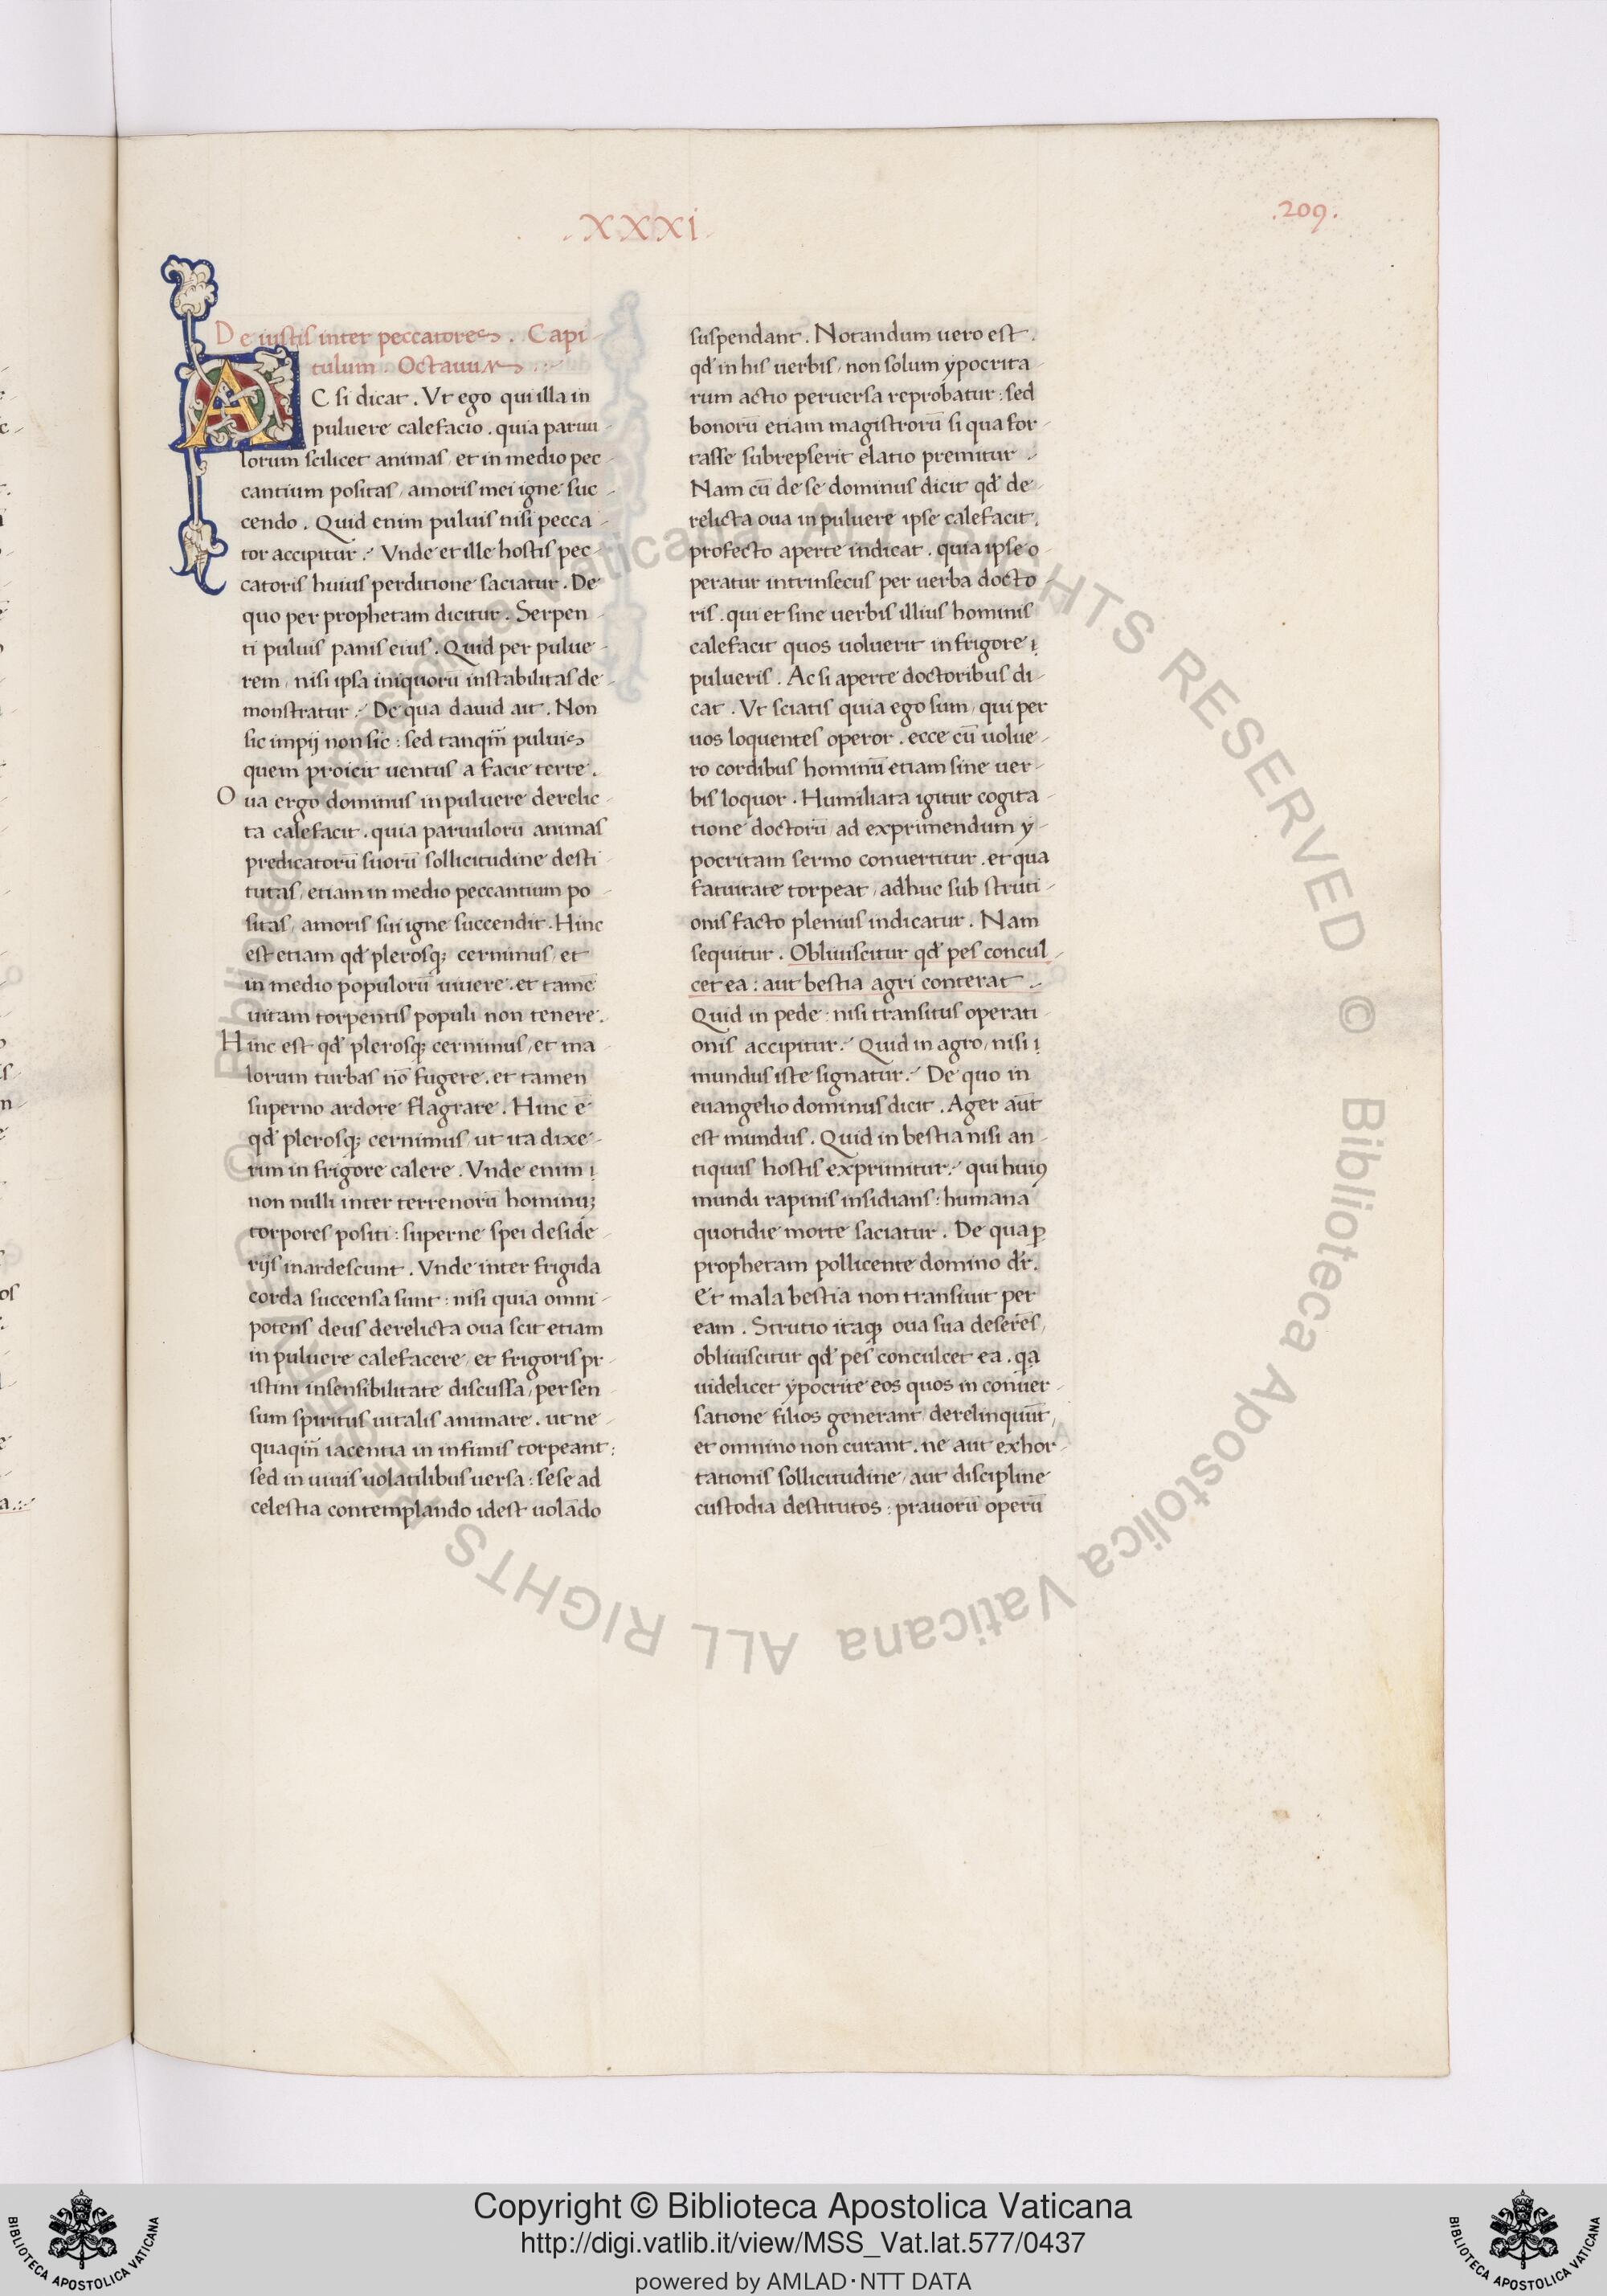 .XXXI.
.209.
De iustis inter peccatores. Capi-
tulum. Octauum.
AC si dicat. Vt ego qui illa in
puluere calefacio. quia paruu-
lorum scilicet animas, et in medio pec-
cantium positas, amoris mei igne suc-
cendo. Quid enim puluis nisi pecca-
tor accipitur? Vnde et ille hostis pec-
catoris huius perditione saciatur. De
quo per prophetam dicitur. Serpen-
ti puluis panis eius. Quid per pulue-
rem, nisi ipsa iniquorū instabilitas de-
monstratur? De qua dauid ait. Non
sic impij non sic: sed tanqm̄ puluis
quem proicit uentus a facie terre.
Oua ergo dominus in puluere derelic-
ta calefacit. quia paruulorū animas
predicatorū suorū sollicitudine desti-
tutas, etiam in medio peccantium po-
sitas, amoris sui igne succendit. Hinc
est etiam qđ plerosq; cernimus, et
in medio populorū uiuere. et tamē
uitam torpentis populi non tenere.
Hinc est qđ plerosq; cernimus, et ma-
lorum turbas nō fugere. et tamen
superno ardore flagrare. Hinc ē
qđ plerosq; cernimus ut ita dixe-
rim in frigore calere. Vnde enim
non nulli inter terrenorū hominū;
torpores positi: superne spei deside-
rijs inardescunt. Vnde inter frigida
corda succensa sunt: nisi quia omni-
potens deus derelicta oua scit etiam
in puluere calefacere, et frigoris pr-
istini insensibilitate discussa, per sen-
sum spiritus uitalis animare. ut ne-
quaqm̄ iacentia in infimis torpeant:
sed in uiuis uolatilibus uersa: sese ad
celestia contemplando idest uolādo
suspendant. Notandum uero est.
qđ in his uerbis, non solum ypocrita-
rum actio peruersa reprobatur: sed
bonorū etiam magistrorū si qua for-
tasse subrepserit elatio premitur.
Nam cū de se dominus dicit qđ de-
relicta oua in puluere ipse calefacit.
profecto aperte indicat. quia ipse o-
peratur intrinsecus per uerba docto-
ris. qui et sine uerbis illius hominis
calefacit quos uoluerit in frigore
pulueris. Ac si aperte doctoribus di-
cat. Vt sciatis quia ego sum, qui per
uos loquentes operor. ecce cū uolue-
ro cordibus hominū etiam sine uer-
bis loquor. Humiliata igitur cogita-
tione doctorū, ad exprimendum y-
pocritam sermo conuertitur. et qua
fatuitate torpeat, adhuc sub struti-
onis facto plenius indicatur. Nam
sequitur. Obliuiscitur qđ pes concul-
cet ea: aut bestia agri conterat.
Quid in pede: nisi transitus operati-
onis accipitur? Quid in agro, nisi
mundus iste signatur? De quo in
euangelio dominus dicit. Ager aūt
est mundus. Quid in bestia nisi an-
tiquus hostis exprimitur? qui huiꝰ
mundi rapinis insidians: humana
quotidie morte saciatur. De qua ꝑ
prophetam pollicente domino dr̄.
Et mala bestia non transiuit per
eam. Strutio itaq; oua sua deserēs,
obliuiscitur qđ pes conculcet ea. qa
uidelicet ypocrite eos quos in conuer-
satione filios generant, derelinquūt,
et omnino non curant. ne aut exhor-
tationis sollicitudine, aut discipline
custodia destitutos: prauorū operū
© Biblioteca Apostolica Vaticana ALL RIGHTS RESERVED © Biblioteca Apostolica Vaticana ALL RIGHTS RESERVED
Copyright © Biblioteca Apostolica Vaticana
http://digi.vatlib.it/view/MSS_Vat.lat.577/0437
powered by AMLAD·NTT DATA
BIBLIOTECA APOSTOLICA VATICANA
BIBLIOTECA APOSTOLICA VATICANA